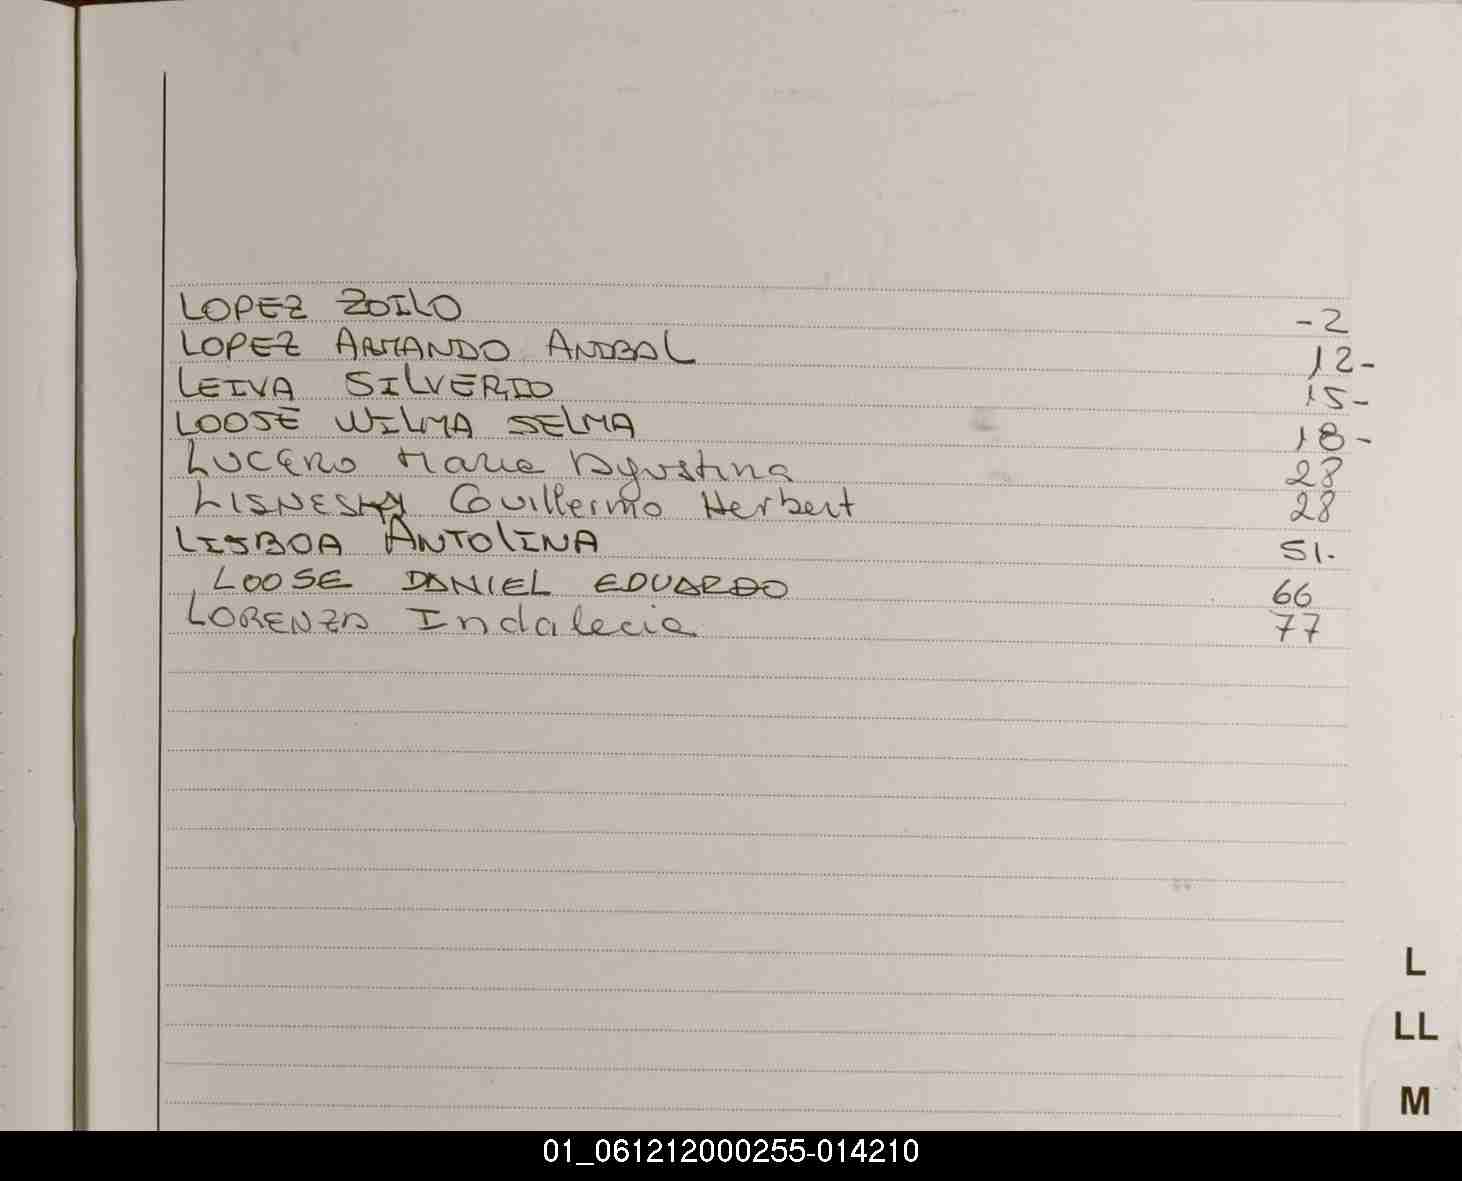 LOPEZ ZOILO -2
LOPEZ ARMANDO ANIBAL 12-
LEIVA SILVERIO 15-
LOOSE WILMA SELMA 18-
LUCERO Maria Agustina 28
LISNESKY Guillermo Herbert 28
LISBOA ANTOLINA 51.
LOOSE DANIEL EDUARDO 66
LORENZA Indalecia 77
L
LL
M
01_061212000255-014210